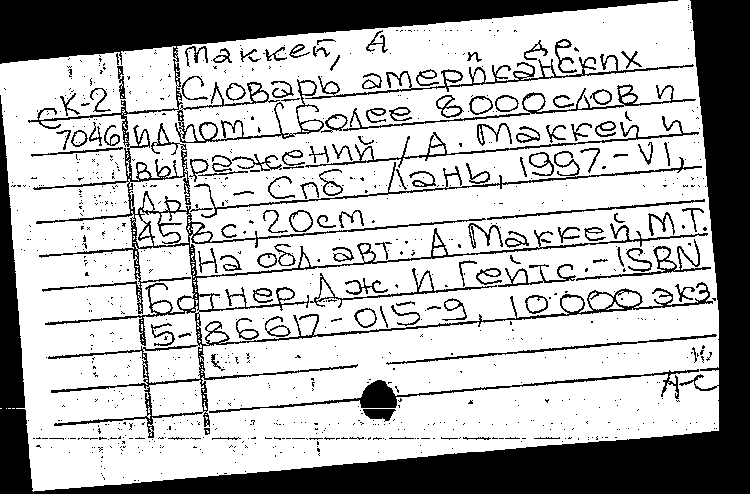 Маккей, А и др.
Словарь американских
СК-2
7046
идиом: [Более 8000 слов и
выражений / А. Маккей и
др.]. - Спб: Лань, 1997. - VI,
458 с.; 20 см.
На обл. авт.: А. Маккей, М.Т.
Ботнер, Дж. И. Гейтс. - ISBN
5-86617-015-9, 10 000 экз.
А-С